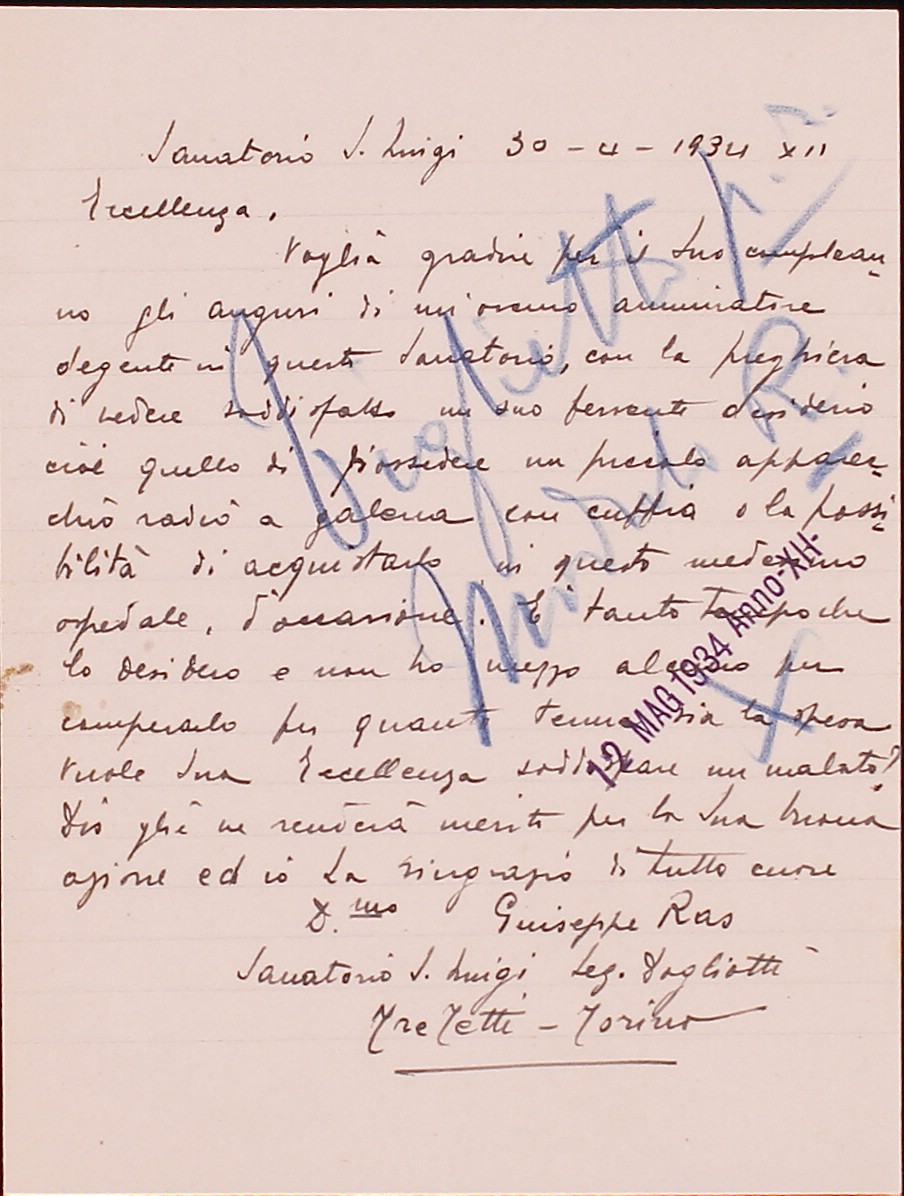 Sanatorio S. Luigi 30 - 4 - 1934 XII
Eccellenza,
Voglia gradire per il Suo complean-
no gli auguri di un'oscuro ammiratore
degente in questo Sanatorio, con la preghiera
di vedere soddisfatto un suo fervente desiderio
cioè quello di possedere un piccolo apparec-
chio radio a galena con cuffia o la possi-
bilità di acquistarlo in questo medesimo
ospedale, d'occasione. E' tanto tempo che
lo desidero e non ho mezzo alcuno per
comperarlo per quanto tenue sia la spesa
Vuole Sua Eccellenza soddisfare un malato?
Dio gliè ne renderà merito per la Sua buona
azione ed io La ringrazio di tutto cuore
D.mo Giuseppe Ras
Sanatorio S. Luigi Leg. Dogliotti
Tre Tetti - Torino
12 MAG 1934 Anno-XII-